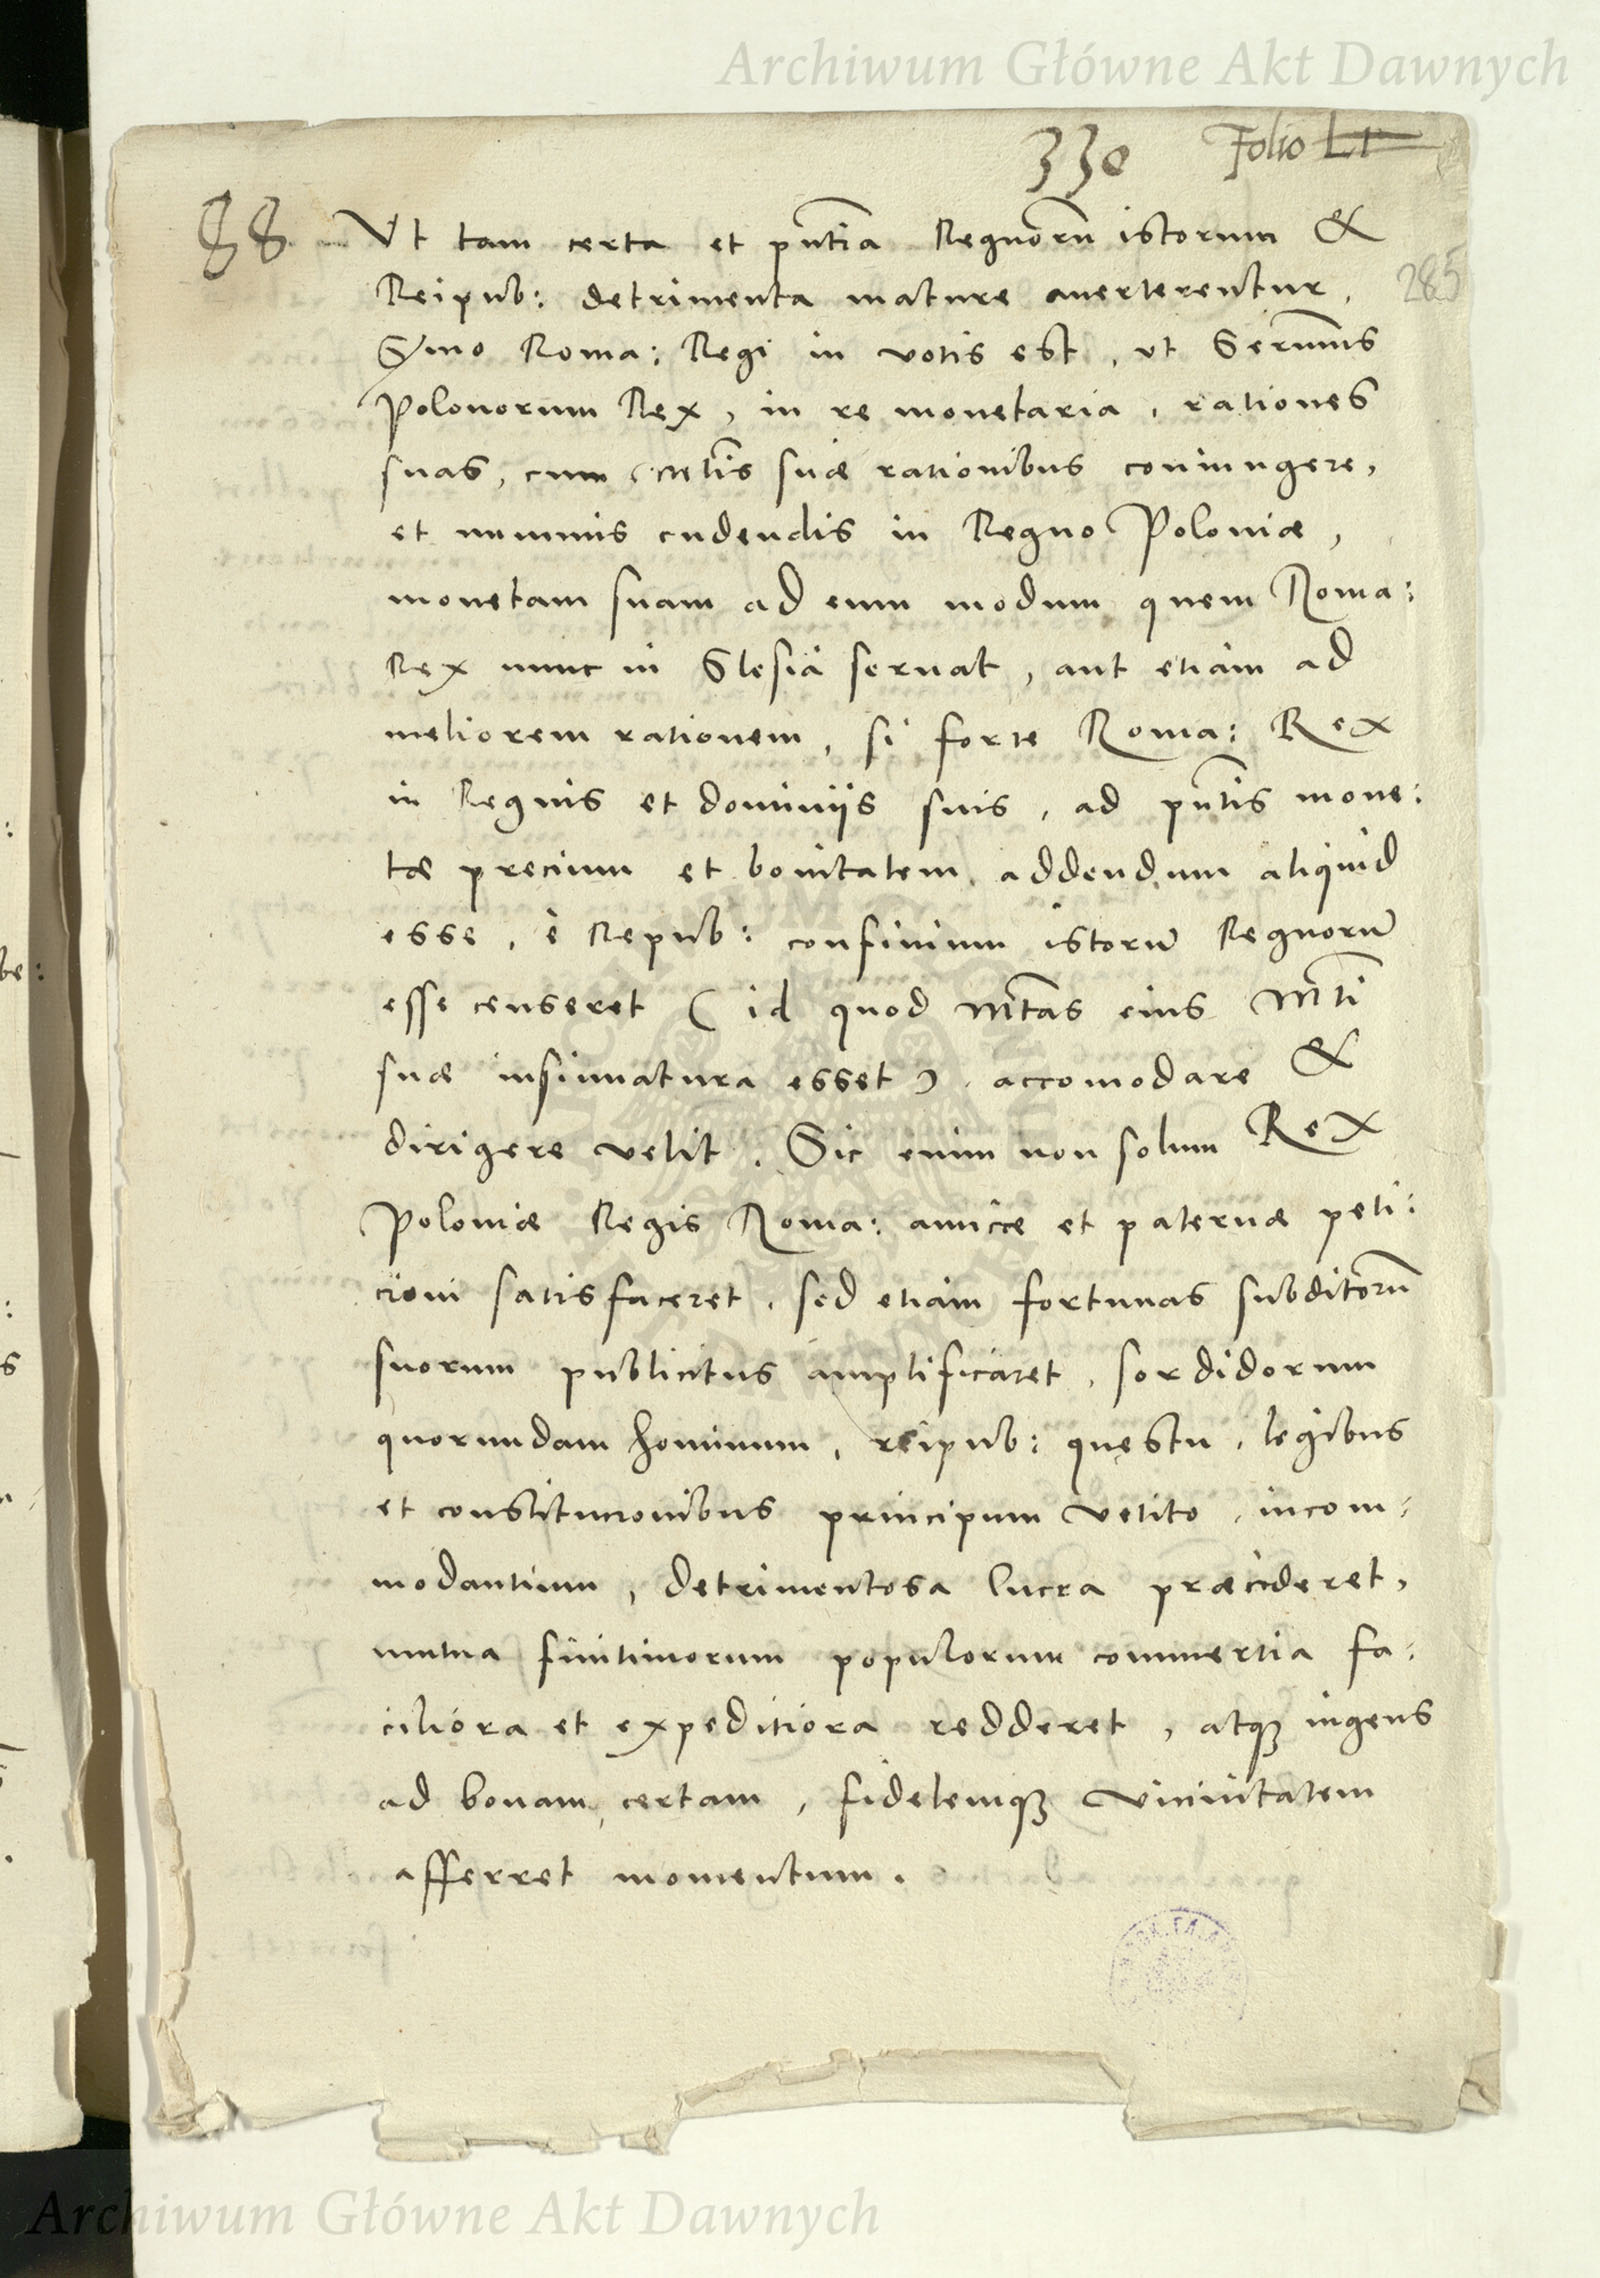 Archiwum Główne Akt Dawnych
330 Folio LI
88 Vt tam certa et pñtia Regnorũ istorum &
285
Reipub: detrimenta mature auerterentur,
Sermo Roma: Regi in votis est, vt Sermus
Polonorum Rex, in re monetaria, rationes
suas, cum Mtis suæ rationibus coniungere,
et nummis cudendis in Regno Poloniæ,
monetam suam ad eum modum quem Roma:
Rex nunc in Slesia seruat, aut etiam ad
meliorem rationem, si forte Roma: Rex
in Regnis et dominijs suis, ad pñtis mone:
tæ precium et bonitatem addendum aliquid
esse, è Repub: confinium istorũ Regnorũ
esse censeret (id quod Mtas eius Mti
suæ insinuatura esset), accomodare &
dirigere velit. Sic enim non solum Rex
Poloniæ Regis Roma: amicæ et paternæ peti:
cioni satisfaceret, sed etiam fortunas subditorũ
suorum publicitus amplificaret, sordidorum
quorundam hominum, reipub: quęstu, legibus
et constitucionibus principum vetito, incom:
modantium, detrimentosa lucra præcideret,
mutua finitimorum populorum commertia fa:
ciliora et expeditiora redderet, atq3 ingens
ad bonam, certam, fidelemq3 vicinitatem
afferret momentum.
Archiwum Główne Akt Dawnych